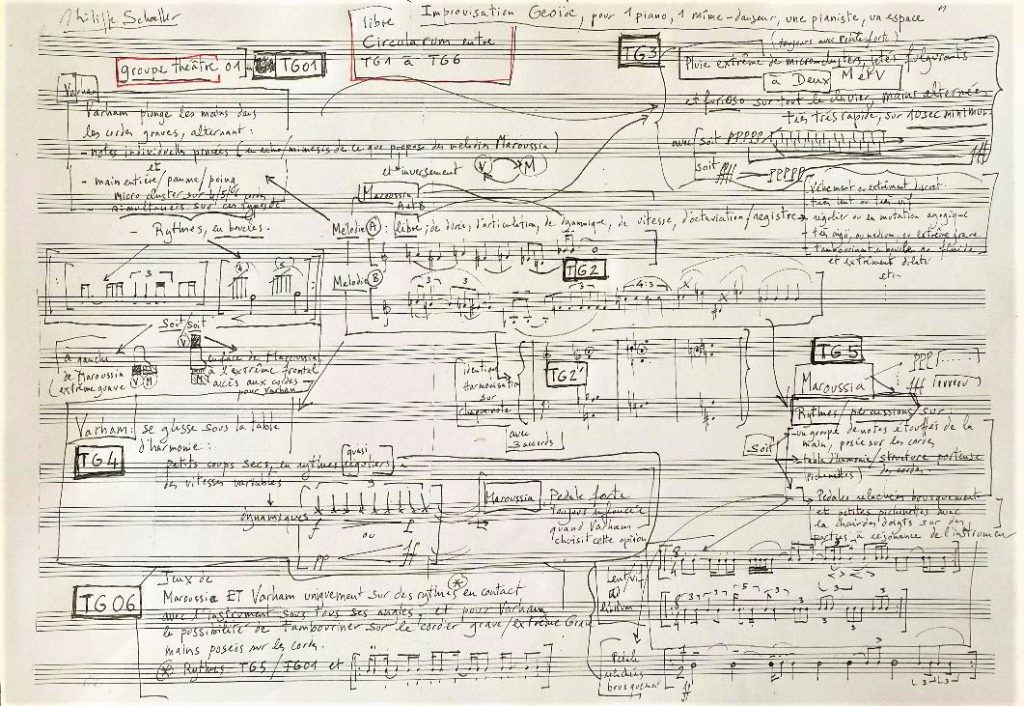 Improvisation Geoire, pour 1 piano, 1 mime-danseur, une pianiste, un espace
libre
Circularum entre
TG1 à TG6
groupe théâtre 01
TG01
TG3
(toujours avec pédale forte)
Pluie extrême de microclusters, jetés fulgurants
à Deux M et V
et furioso sur tout le clavier, mains alternées
très très rapide, sur 10sec minimum
avec soit ppppp
fff
soit fff ppppp
Varham
Varham plonge les mains dans
les cordes graves, alternant:
- notes individuelles
(en écho/mimesis de ce que propose des melodies Maroussia)
et
- main entière/paume/poing
micro cluster sur
simultanéis sur
et inversement
V M
Maroussia
A et B
- Rythmes, en boucles.
Mélodie A : libre, de durée, d'articulation, de dynamique, de vitesse, d'octaviation/registre
Vehement ou extrêment discret
très lent ou très vif
régulier ou en mutation agogique
très aigu, ou medium, ou extrême grave
et extrêment dilaté
etc
3
Melodie B
TG2
3 3
4:3
Soit/soit
à gauche
de Maroussia
(extrême grave
V M
V
M
en face de Maroussia
à l'extrême frontal
accès aux cordes
pour Varham
identique
Harmonisation
sur
chaque note
TG2'
avec
3 accords
TG5
Maroussia
ppp
fff
Rythmes/percussions sur:
Soit
un groupe de notes étouffés de la
main, posée sur les cordes
table d'harmonie/structure porteuse
des cordes
(pichenettes)
Varham: se glisse sous la table
d'harmonie:
TG4
petits coups secs, en rythmes
quasi
réguliers à
des vitesses variables
dynamiques
f ff
ou
pp ff
Maroussia Pédale forte
toujours enfoncée
quand Varham
choisit cette option
Pédale relâchée brusquement
et petites pichenettes avec
la chair des doigts sur des
parties à résonance de l'instrument
TG06
Jeux de
Maroussia ET Varham uniquement sur des rythmes en contact
avec l'instrument sous tous ses angles, et pour Varham
la possibilité de tambouriner sur le cordier grave/extrême Grave
mains posées sur les cordes.
Rythmes TG5/TG01 et
Lent/vif
ad
libitum
Pédale
relâchée
brusquement